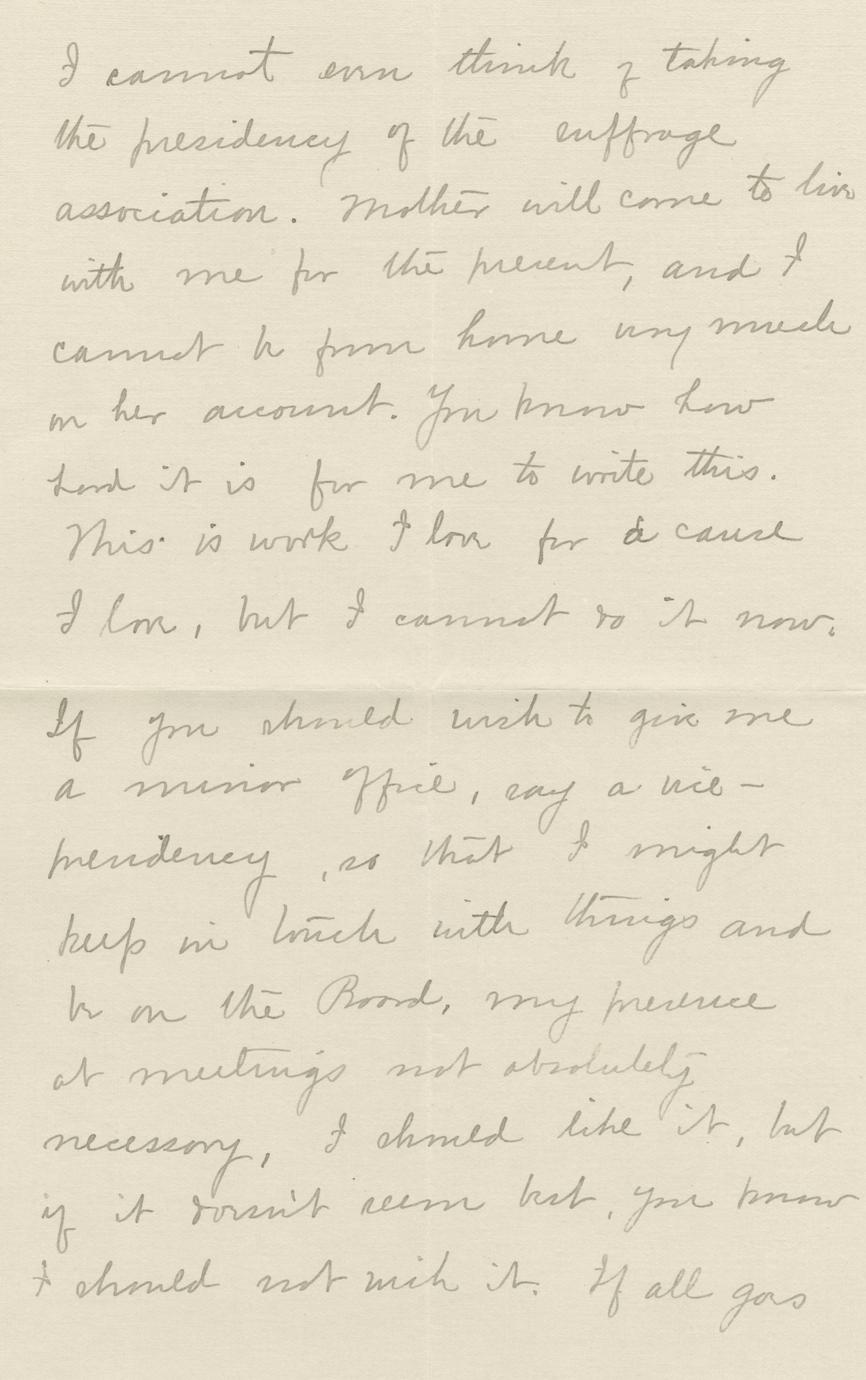 I cannot even think of taking
the presidency of the suffrage
association. Mother will come to live
with me for the present, and I
cannot be from home very much
on her account. You know how
hard it is for me to write this.
This is work I love for a cause
I love, but I cannot do it now.
If you should wish to give me
a minor office, say a vice-
presidency, so that I might
keep in touch with things and
be on the Board, my presence
at meetings not absolutely
necessary, I should like it, but
if it doesn't seem best, you know
I should not wish it. If all goes